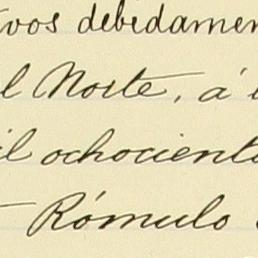 tvos debidamen
l Norte, á
il ochociento
Rómulo